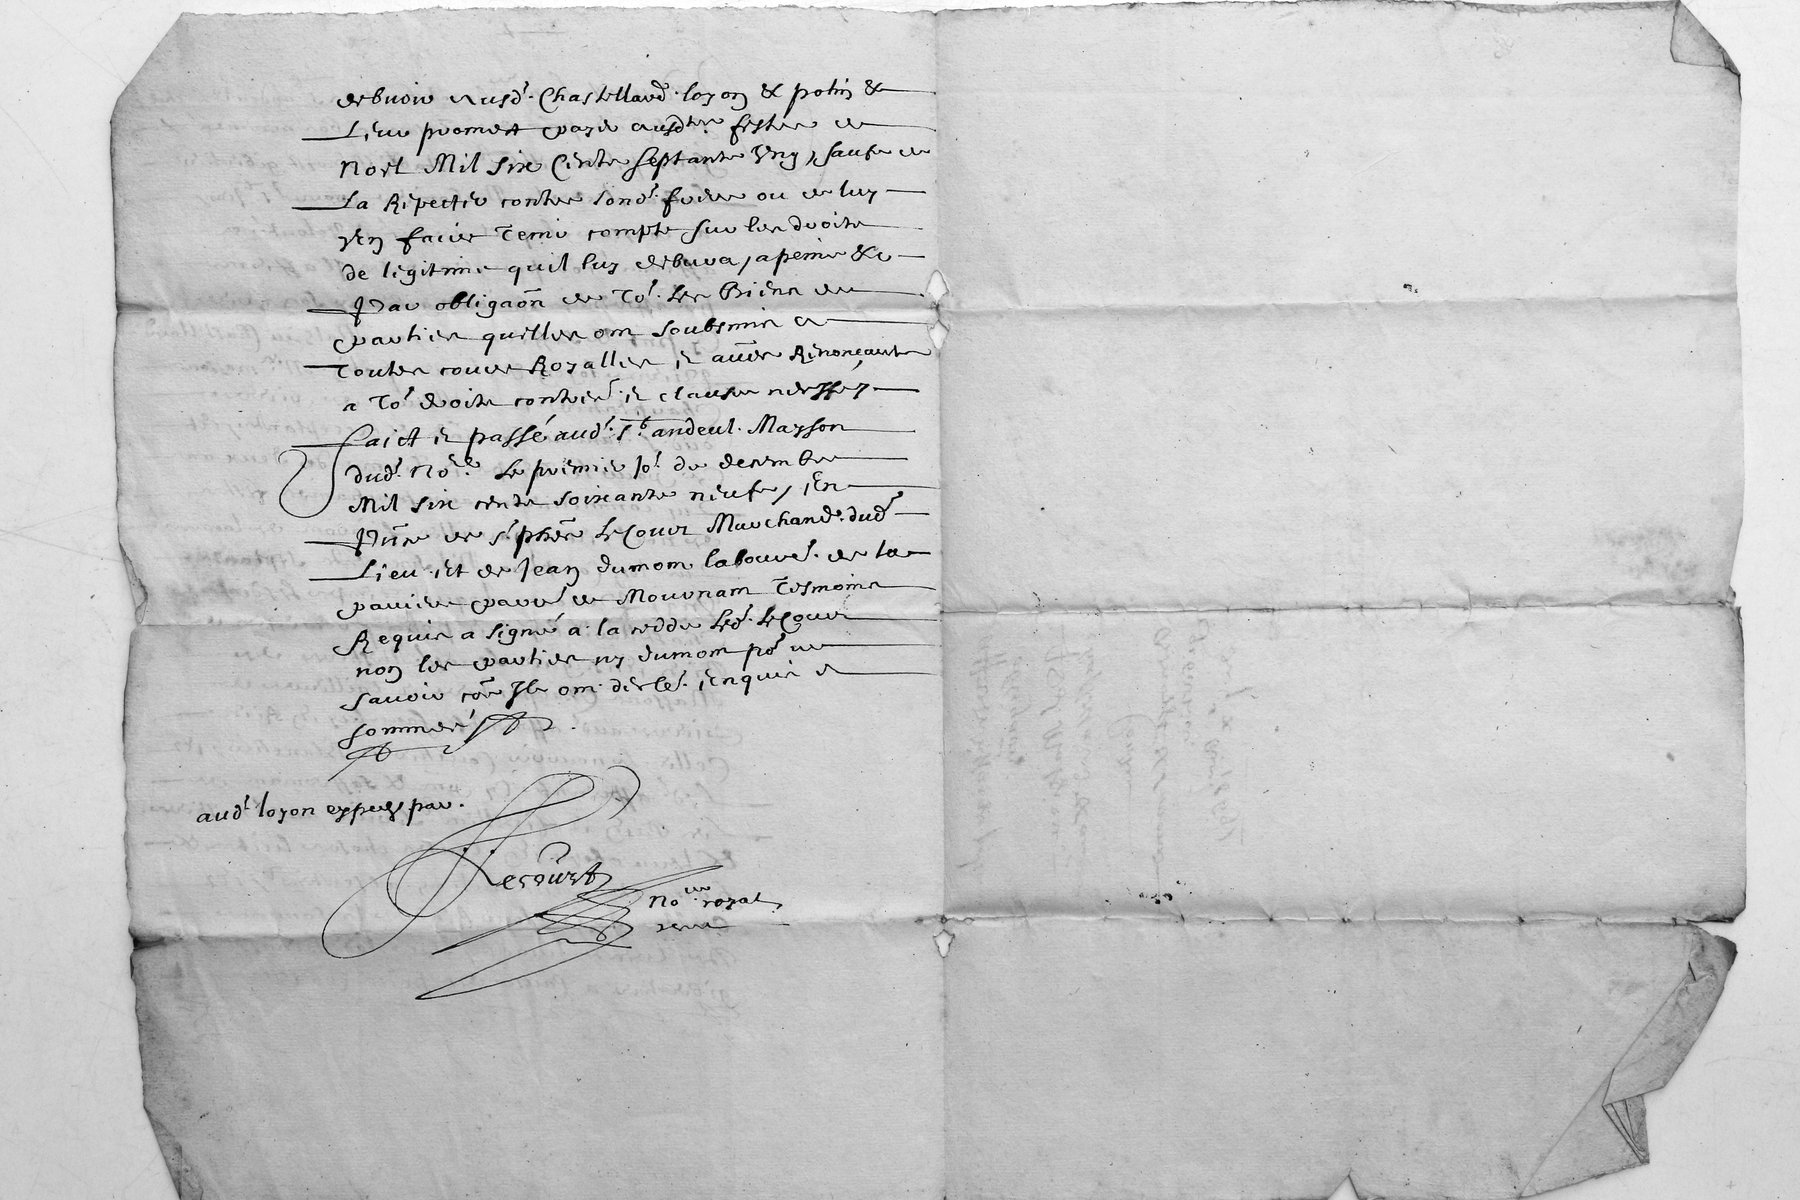 debvoir ausd. Chastelland. loyon & potin &
Lieu promect payé ausdtes. festes de
Noel Mil six Cents septante Ung, saufz de
La Repecter contre sond. frere ou de luy
yen faire Tenir compte sur les droits
de legitime quil luy debvra, a peine &c
Par obligaon de To. les Biens des
parties quelles ont soubsmis a
Toutes cours Royalles, et aues Renonceants
a To. droits contres. et clauses ness
faict et passé aud. St. andeul. Mayson
dud. Nore. Le premier Jo. de decembre
Mil six cents soixante neufz, En
Pnce de Sr. phe LeCour Marchand. dud.
Lieu et de Jean dumont laboure. de la
paviere parre. de Mournant Tesmoins
Requis a signé a la cedde Led. LeCour
non les parties ny dumont po. ne
savoir coe Ils ont desle. Enquis et
sommés
aud. loyon expedy par.
Lecourt
Nore. royal